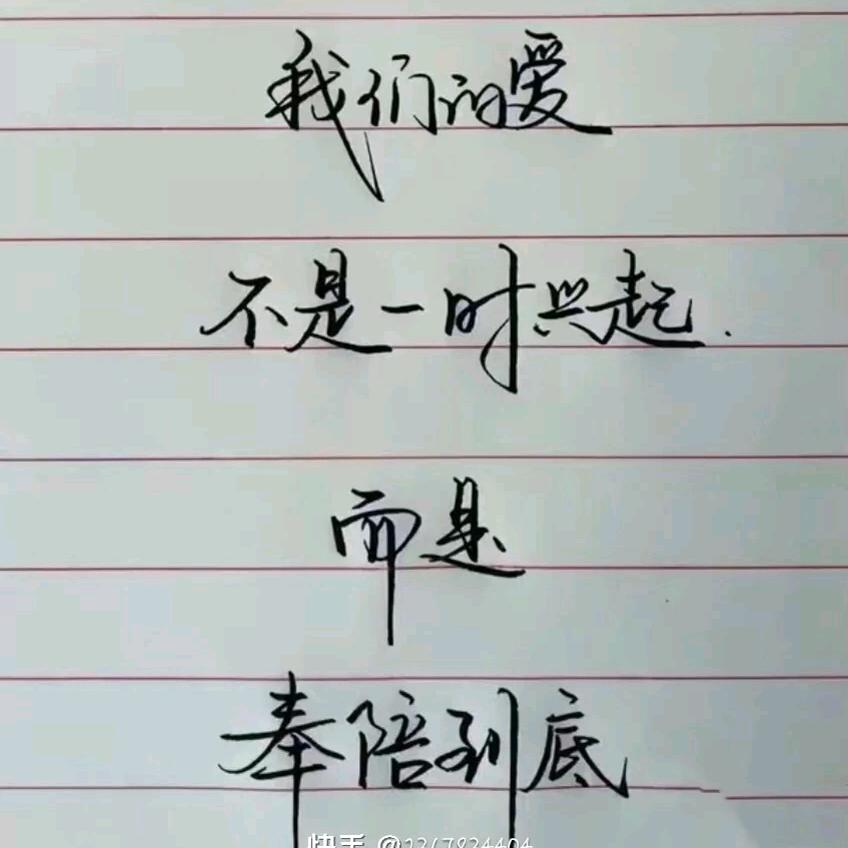 我们的爱
不是一时兴起.
而是
奉陪到底